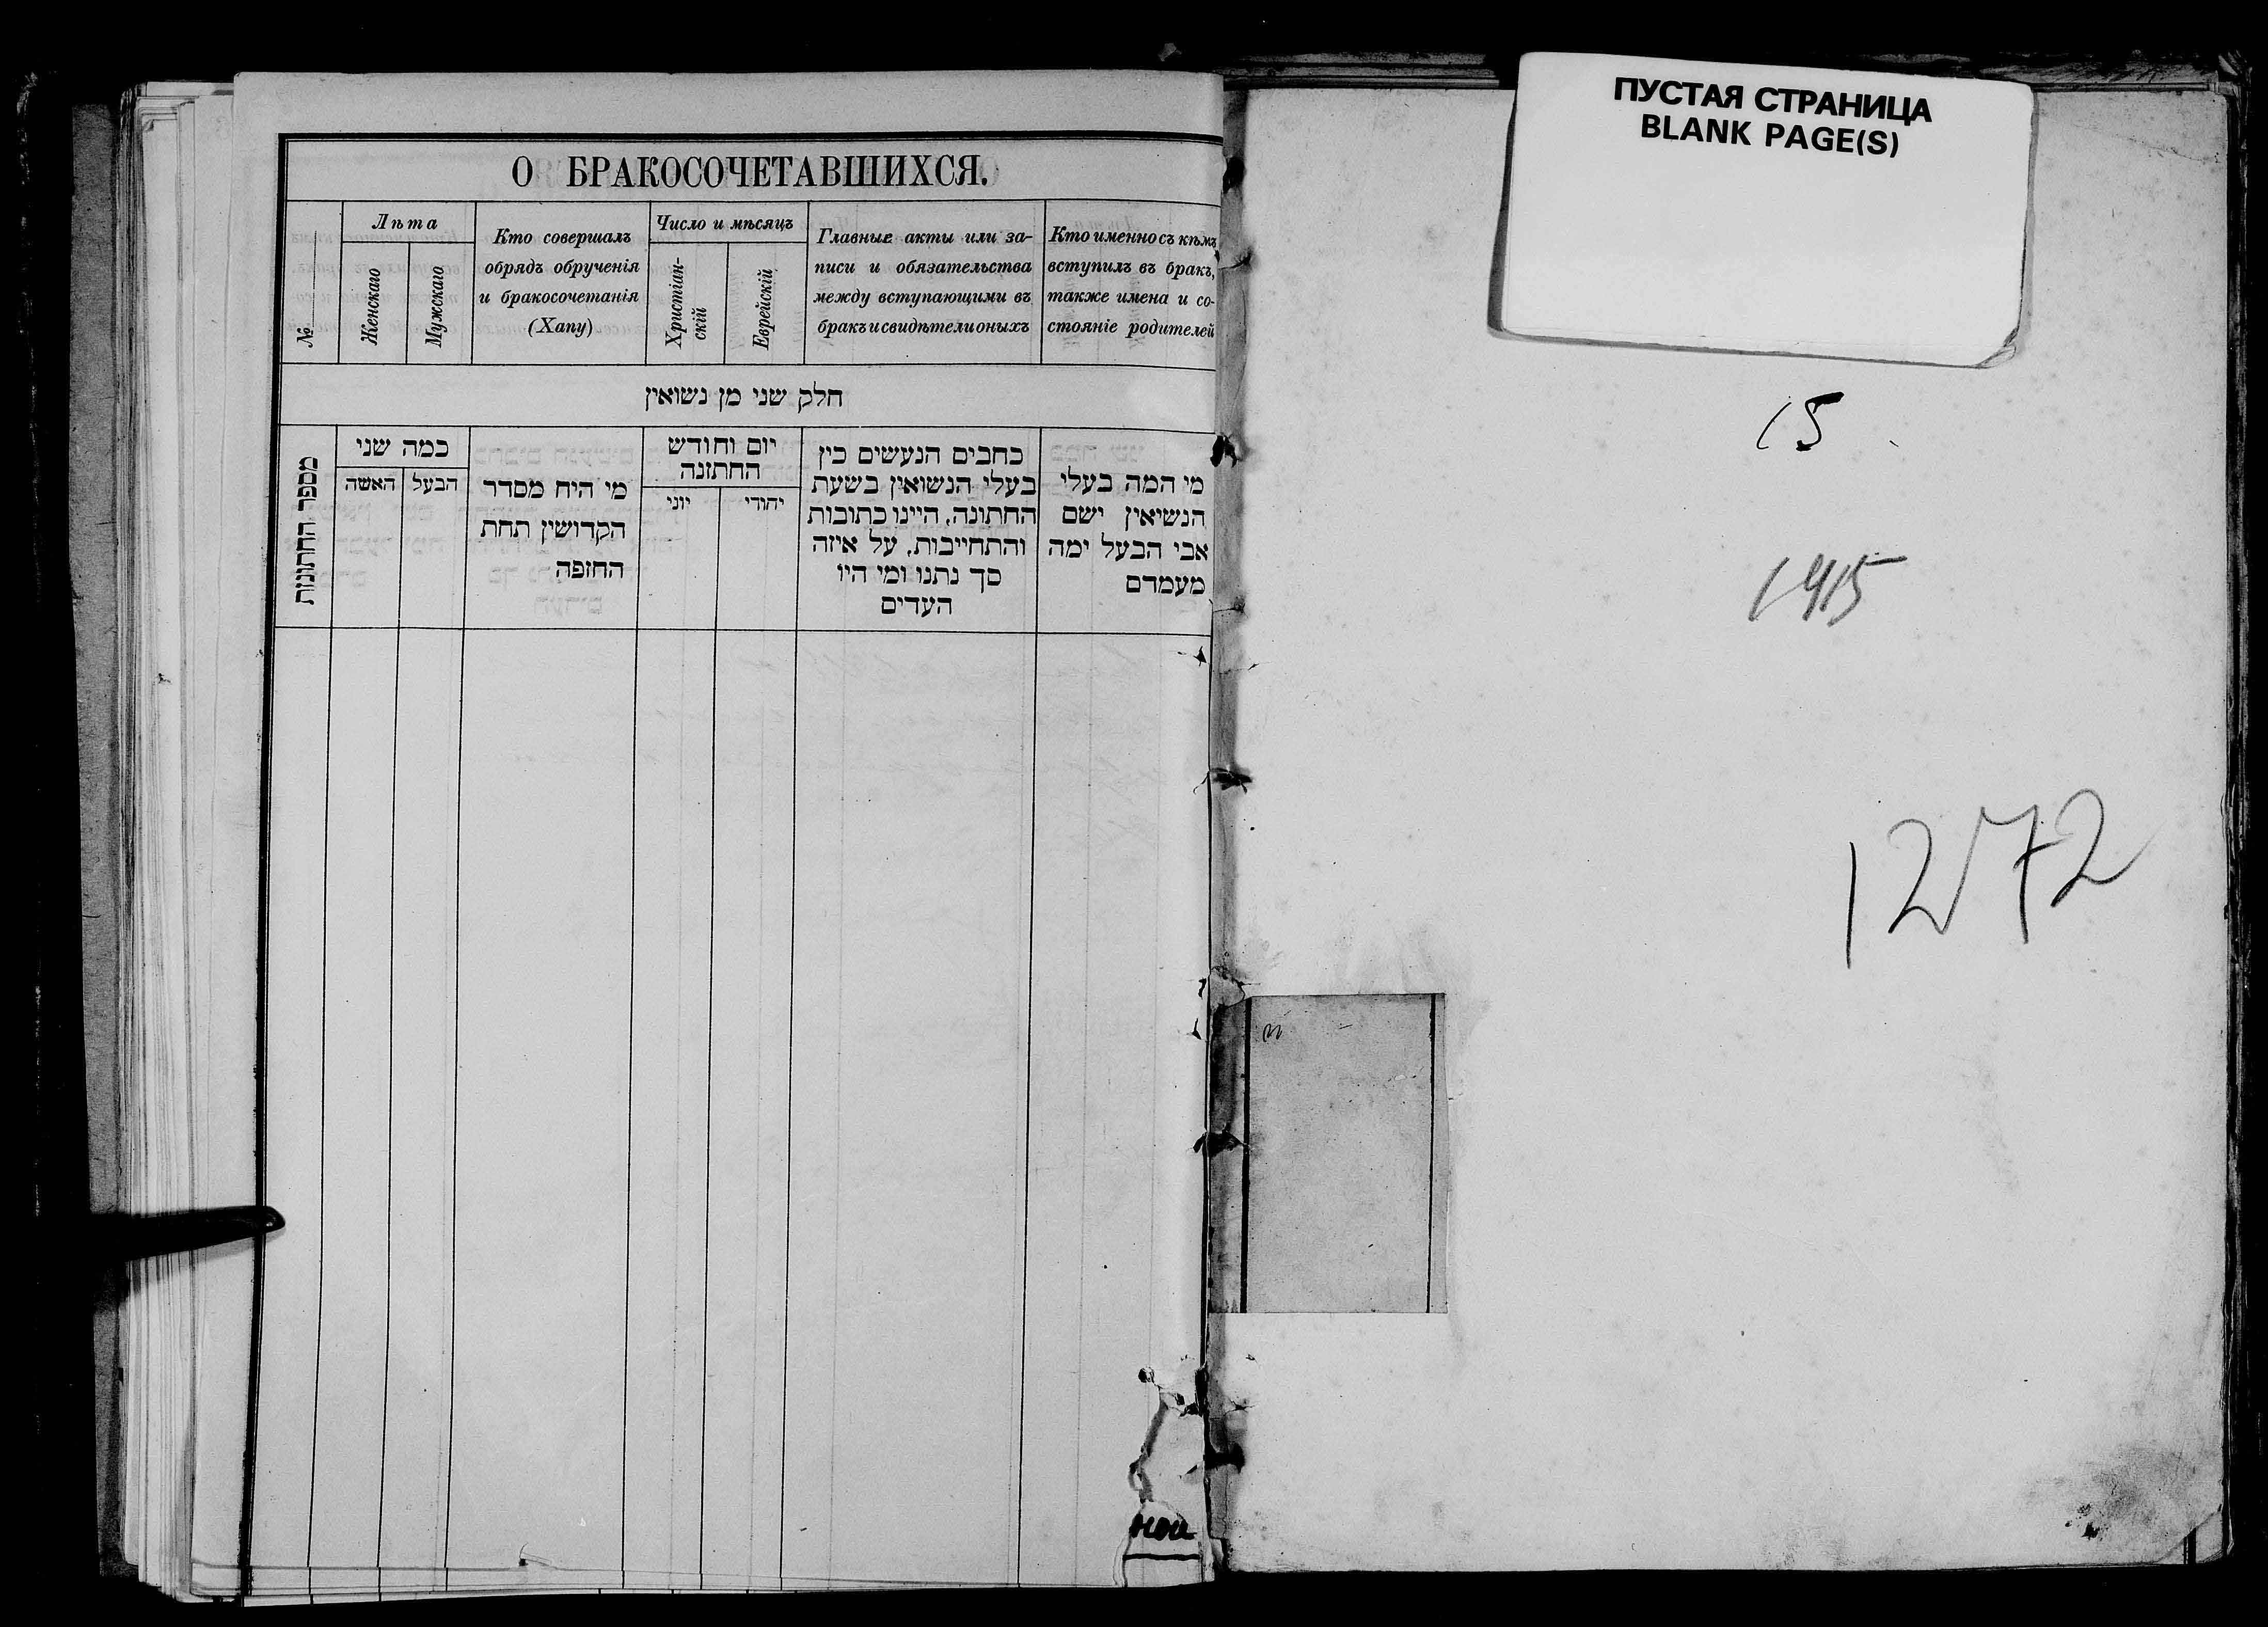 О БРАКОСОЧЕТАВШИХСЯ.
№
Лѣта
Женскаго
Мужскаго
Кто совершалъ
обрядъ обрученія
и бракосочетанія
(Хапу)
Число и мѣсяцъ
Христіан-
скій
Еврейскій
Главные акты или за-
писи и обязательства
между вступающими въ
бракъ и свидѣтели оныхъ
Кто именно съ кѣмъ
вступилъ въ бракъ,
также имена и со-
стояніе родителей
חלק שני מן נשואין
מספר החתונות
כמה שני
האשה
הבעל
מי היה מסדר
הקדושין תחת
החופה
יום וחודש
החתונה
יוני
יהודי
כתבים הנעשים בין
בעלי הנשואין בשעת
החתונה, היינו כתובות
והתחייבות, על איזה
סך נתנו ומי היו
העדים
מי המה בעלי
הנשיאין ישם
אבי הבעל ימה
מעמדם
ПУСТАЯ СТРАНИЦА
BLANK PAGE(S)
15
1915
1272